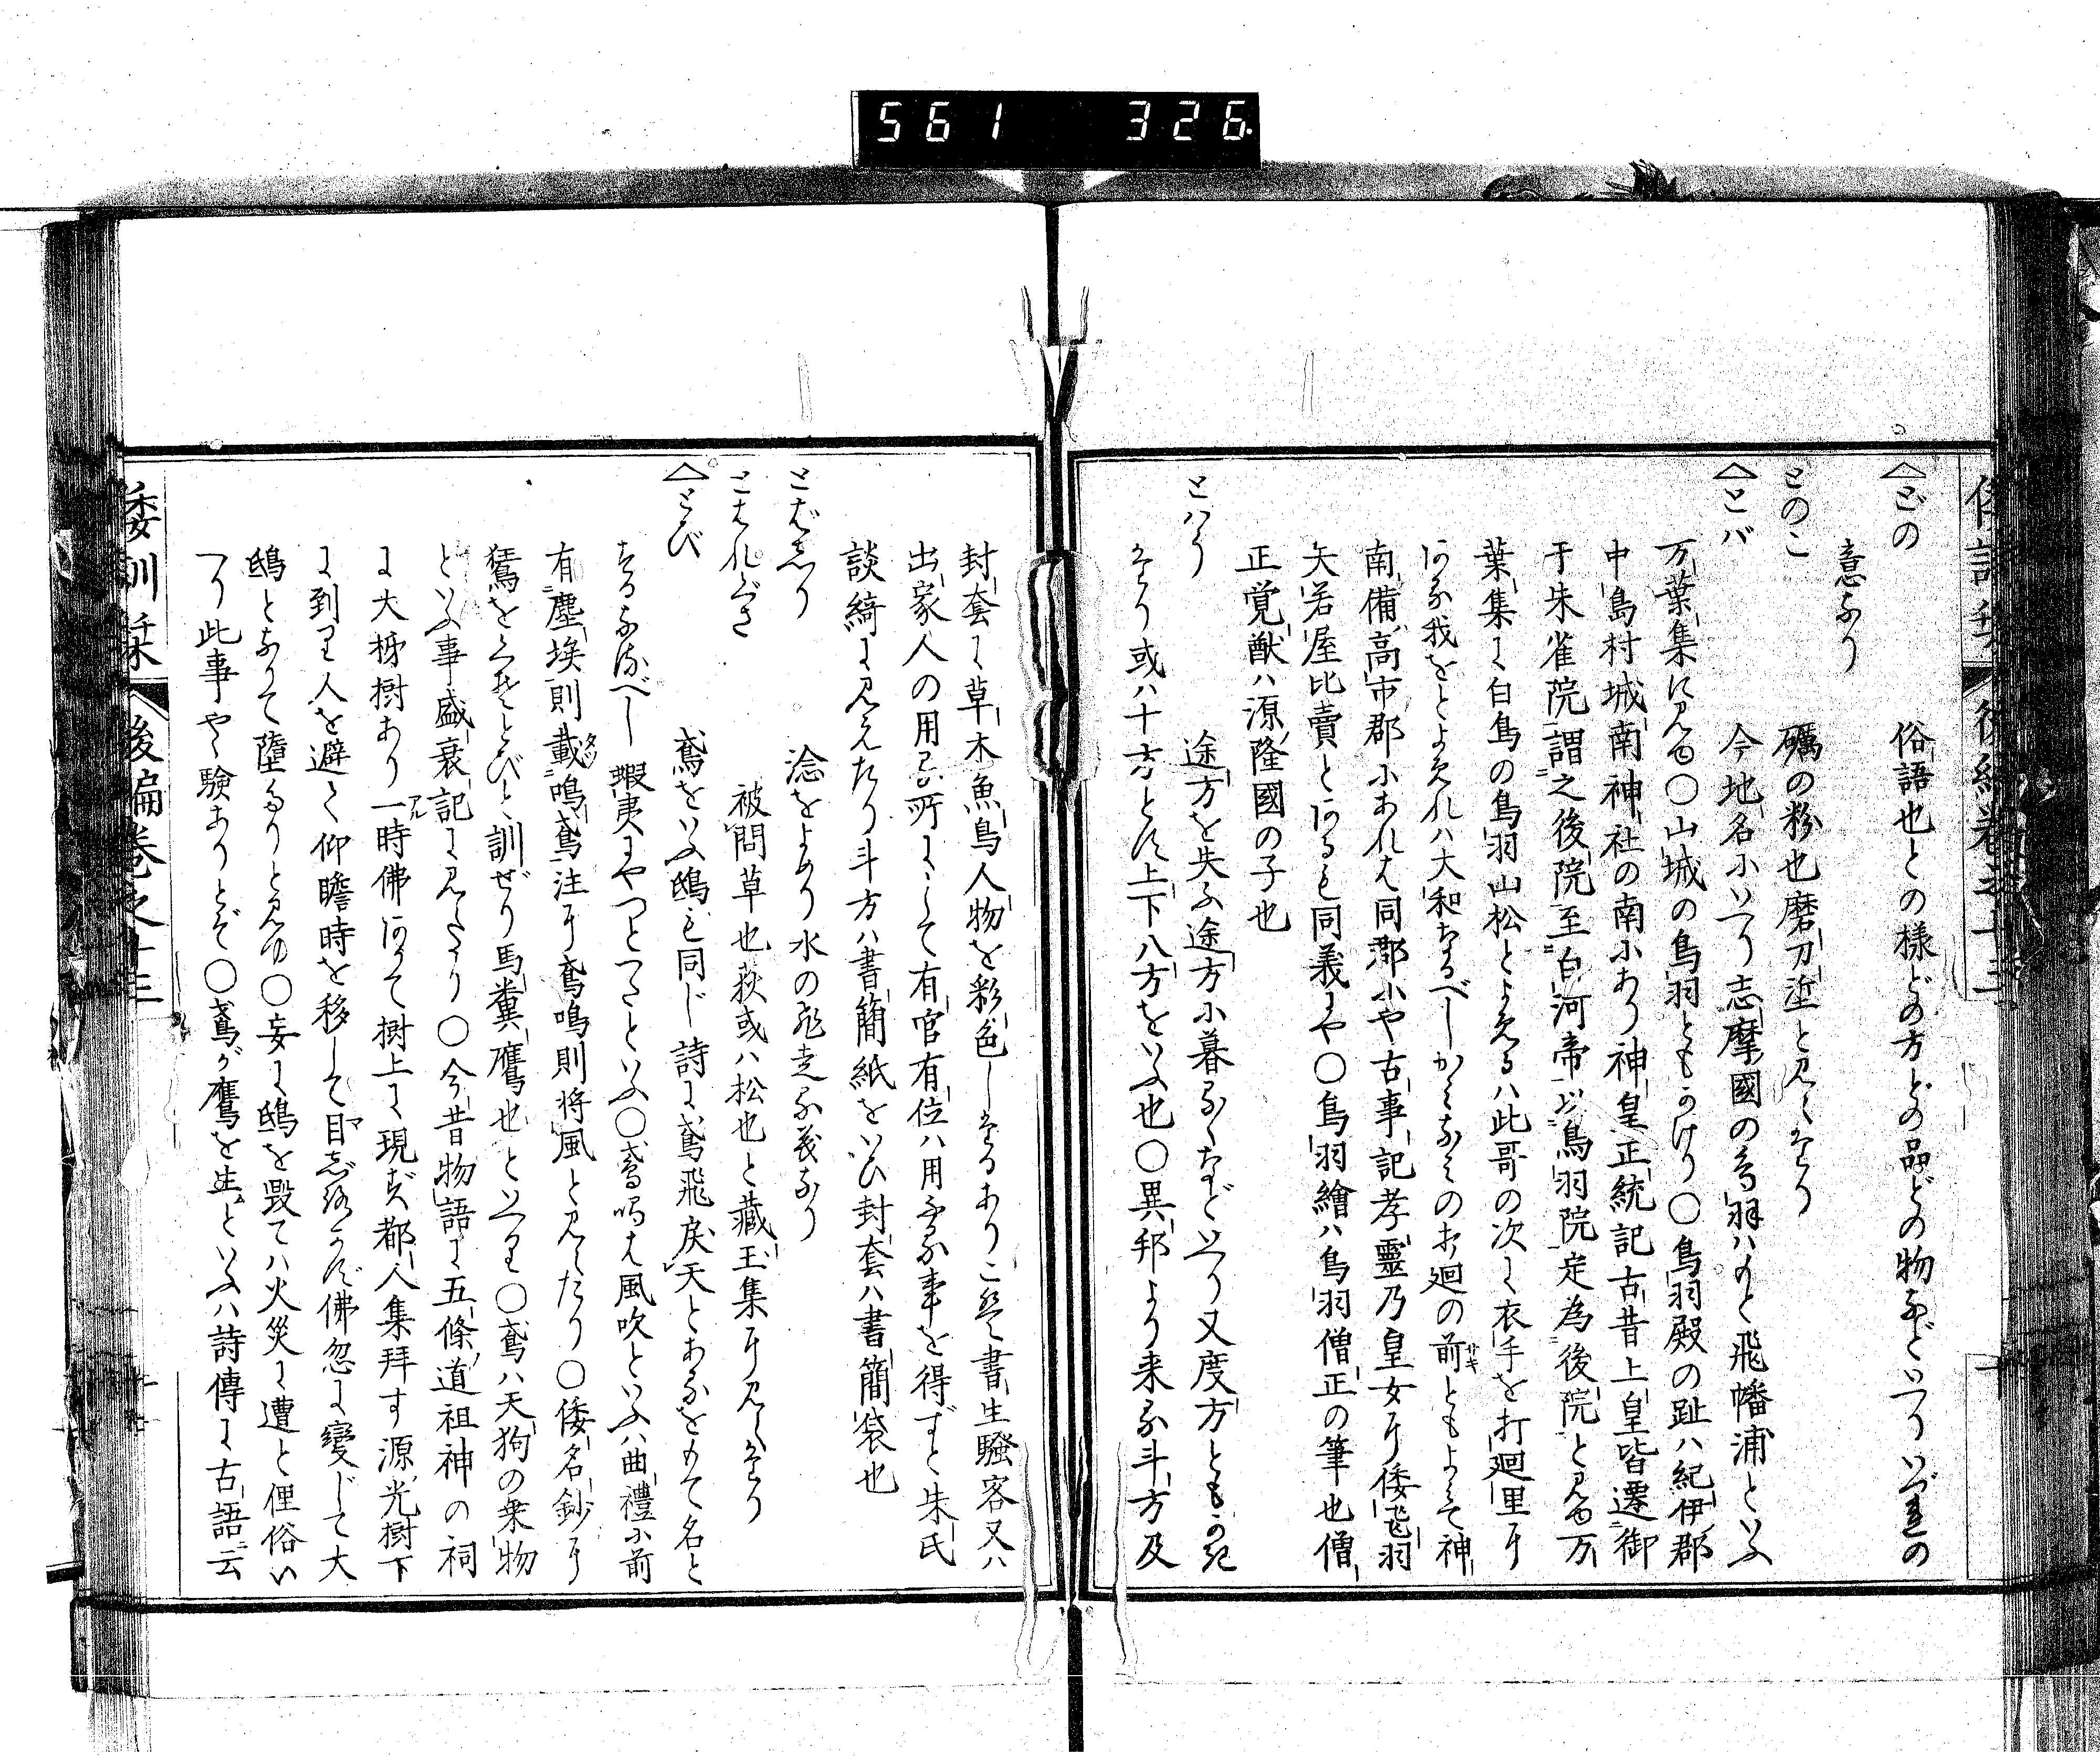 561 326
へどの 俗語也との様どの方どの品どの物などいへりいづれの
意なり
とのこ 礪の粉也磨刀坓と見えたり
へとバ 今地名にいへり志摩國の鳥羽ハもと飛幡浦といふ
万葉集に見ゆ〇山城の鳥羽ともつけり〇鳥羽殿の趾ハ紀伊郡
中島村城南神社の南にあり神皇正統記古昔上皇皆遷御
于朱雀院謂之後院至白河帝以鳥羽院定為後院と見ゆ万
葉集に白鳥の鳥羽山松とよめるハ此哥の次に衣手を打廻里に
ある我をとよめれハ大和なるべしかミなミのお廻の前ともよミて神
南備高市郡にあれは同郡にや古事記孝靈乃皇女に倭飛羽
矢若屋比賣とあるも同義にや〇鳥羽繪ハ鳥羽僧正の筆也僧
正覚猷ハ源隆國の子也
とハう 途方を失ふ途方に暮るゝなどいへり又度方ともかけ
たり或ハ十方とす上下八方をいふ也〇異邦より来る斗方及
封套に草木魚鳥人物を彩色したるありこれ書生騒客又ハ
出家人の用る所にして有官有位ハ用る事を得ずと朱氏
談綺に見えたり斗方ハ書簡紙をいひ封套ハ書簡袋也
とばしり 淰をよめり水の飛走る義なり
とはれぐさ 被問草也萩或ハ松也と藏玉集に見えたり
へとび 鳶をいふ鴟も同じ詩に鳶飛戻天とあるをもて名と
するなるべし蝦夷にやつとつこといふ〇鳶鳴は風吹といふハ曲禮に前
有塵埃則載鳴鳶注に鳶鳴則将風と見えたり〇倭名鈔に
𪀚をくそとびと訓ぜり馬糞鷹也といへり〇鳶ハ天狗の乗物
といふ事盛衰記に見えたり〇今昔物語に五條道祖神の祠
に大柹樹あり一時佛ありて樹上に現ず都人集拜す源光樹下
に到り人を避て仰瞻時を移して目しばろかず佛忽に變じて大
鴟となりて墮るりと見ゆ〇妄に鴟を毀てハ火災に遭と俚俗い
へり此事や験ありとぞ〇鳶が鷹を生といふハ詩傳に古語云
倭訓栞 後編巻之十三